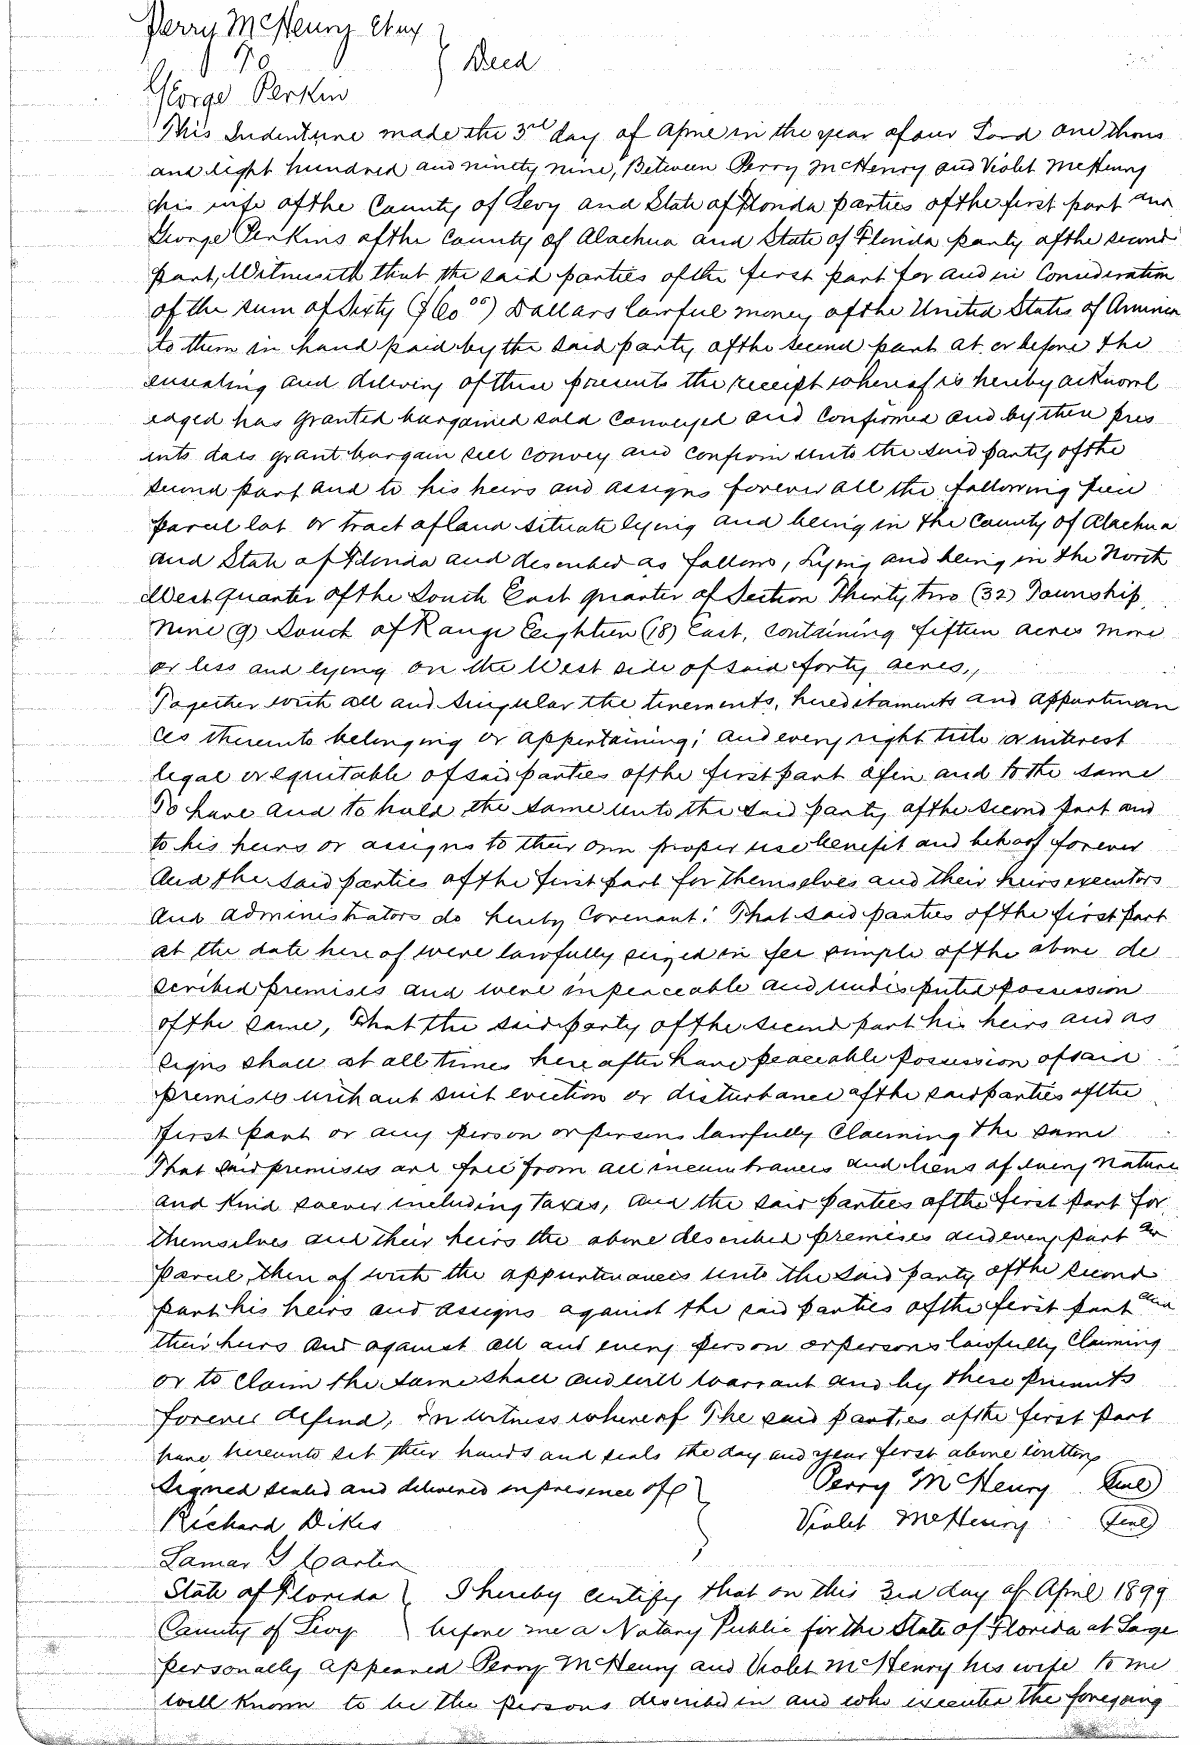 Perry McHenry et ux
To } Deed
George Perkin
This Indenture made the 3rd day of April in the year of our Lord one thous
and eight hundred and ninety nine, Between Perry McHenry and Violet McHenry
his wife of the County of Levy and State of Florida parties of the first part and
George Perkins of the County of Alachua and State of Florida party of the second
part, Witnesseth that the said parties of the first part for and in Consideration
of the sum of Sixty ($60 00) Dollars lawful money of the United States of America
to them in hand paid by the said party of the second part at or before the
ensealing and delivery of these presents the receipt whereof is hereby acknowl
edged has granted bargained sold conveyed and confirmed and by these pres
ents does grant bargain sell convey and confirm unto the said party of the
second part and to his heirs and assigns forever all the following piece
parcel lot or tract of land situate lying and being in the County of Alachua
and State of Florida and described as follows, Lying and being in the North
West quarter of the South East quarter of Section Thirty two (32) Township
Nine (9) South of Range Eighteen (18) East, containing fifteen acres more
or less and lying on the West side of said forty acres.,
Together with all and singular the tenements, hereditaments and appurtenan
ces thereunto belonging or appertaining; and every right title or interest
legal or equitable of said parties of the first part of in and to the same
To have and to hold the same unto the said party of the second part and
to his heirs or assigns to their own proper use benefit and behoof forever
And the said parties of the first part for themselves and their heirs executors
and administrators do hereby Covenant: That said parties of the first part
at the date here of were lawfully seized in fee simple of the above de
scribed premises and were in peaceable and undisputed possession
of the same, That the said party of the second part his heirs and as
signs shall at all times here after have peaceable possession of said
premises without suit eviction or disturbance of the said parties of the
first part or any person or persons lawfully claiming the same
That said premises are free from all incumbrances and liens of every nature
and kind soever including taxes, and the said parties of the first part for
themselves and their heirs the above described premises and every part and
parcel there of with the appurtenances unto the said party of the second
part his heirs and assigns against the said parties of the first part and
their heirs and against all and every person or persons lawfully claiming
or to claim the same shall and will warrant and by these presents
forever defend, In witness whereof The said parties of the first part
have hereunto set their hands and seals the day and year first above written
Signed sealed and delivered in presence of } Perry McHenry (Seal)
Richard Dikes Violet McHenry (Seal)
Lamar G Carter
State of Florida } I hereby certify that on this 3rd day of April 1899
County of Levy } before me a Notary Public for the State of Florida at Large
personally appeared Perry McHenry and Violet McHenry his wife to me
well known to be the persons described in and who executed the foregoing